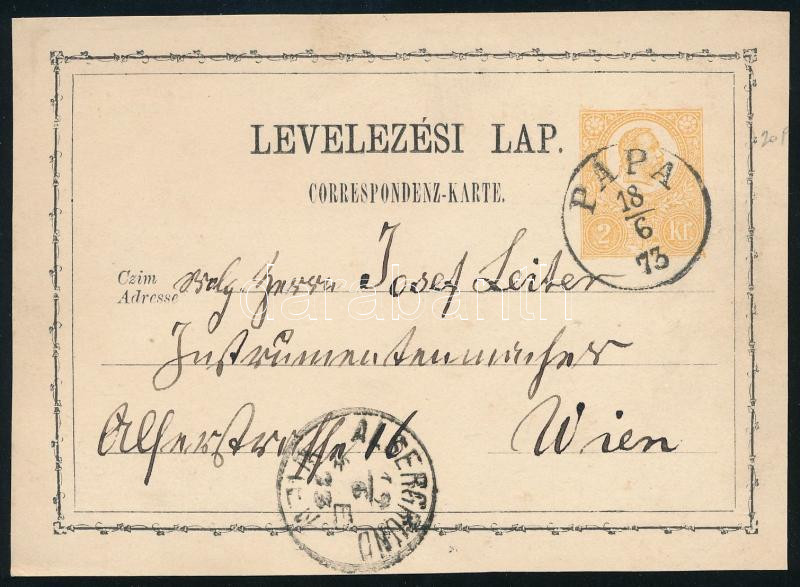 LEVELEZÉSI LAP.
CORRESPONDENZ-KARTE.
2 Kr
PÁPA
18/6
73
20 P
Czim
Adresse
Wolg. Herrn Josef Leiter
Instrumentenmacher
Alserstrasse 16 Wien
ALSERGRUND WIEN
19
6
E
darabanth